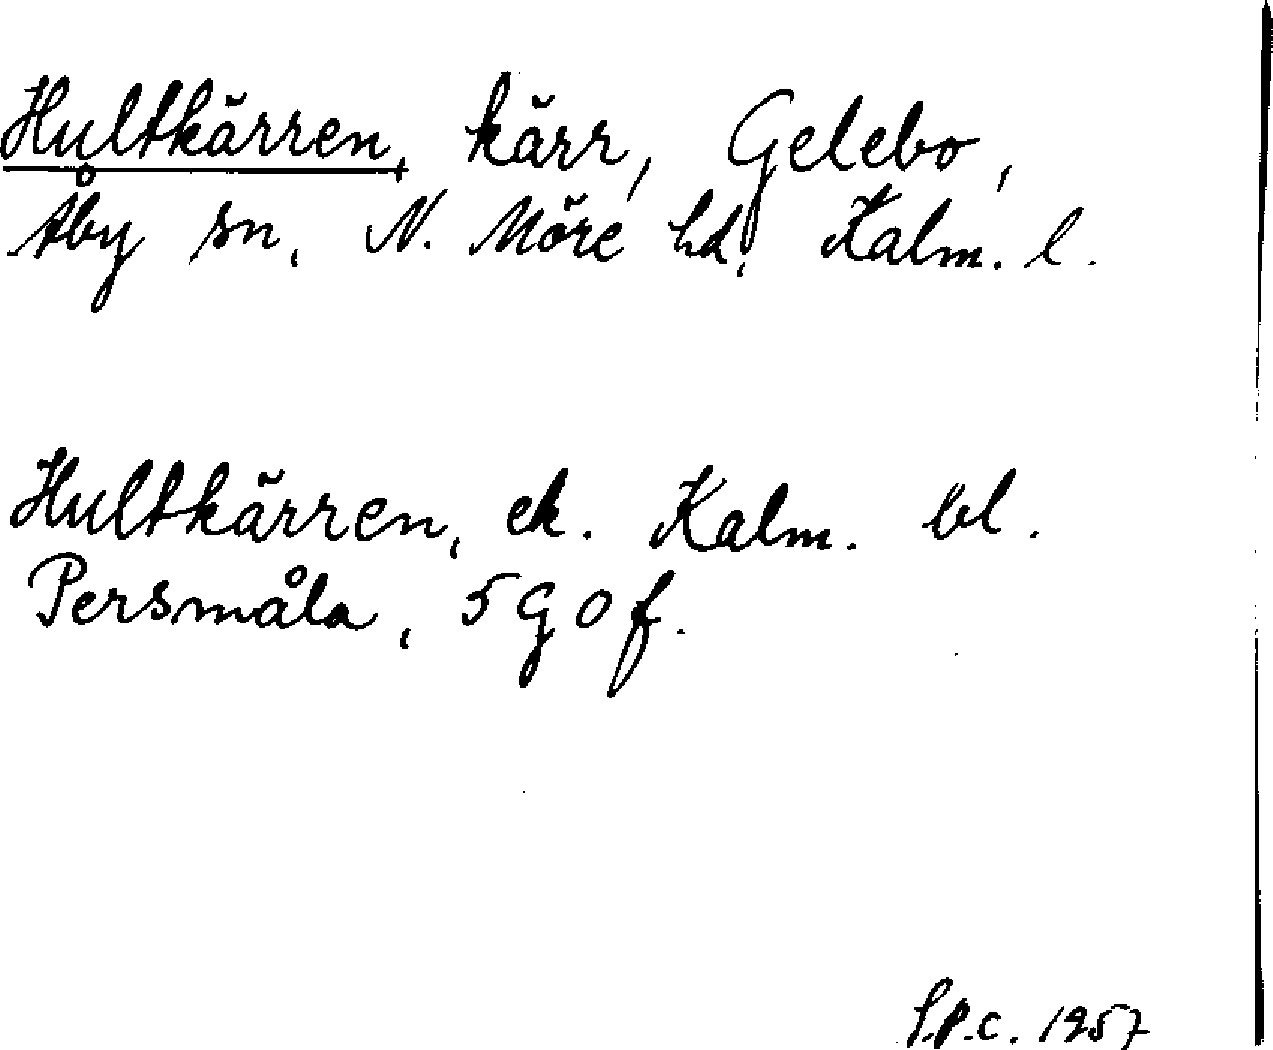 Hultkärren, kärr, Gelebo,
Åby sn, N. Möre hd, Kalm. l.
Hultkärren, ek. Kalm. bl.
Persmåla, 5 g 0 f.
S.P.C. 1957